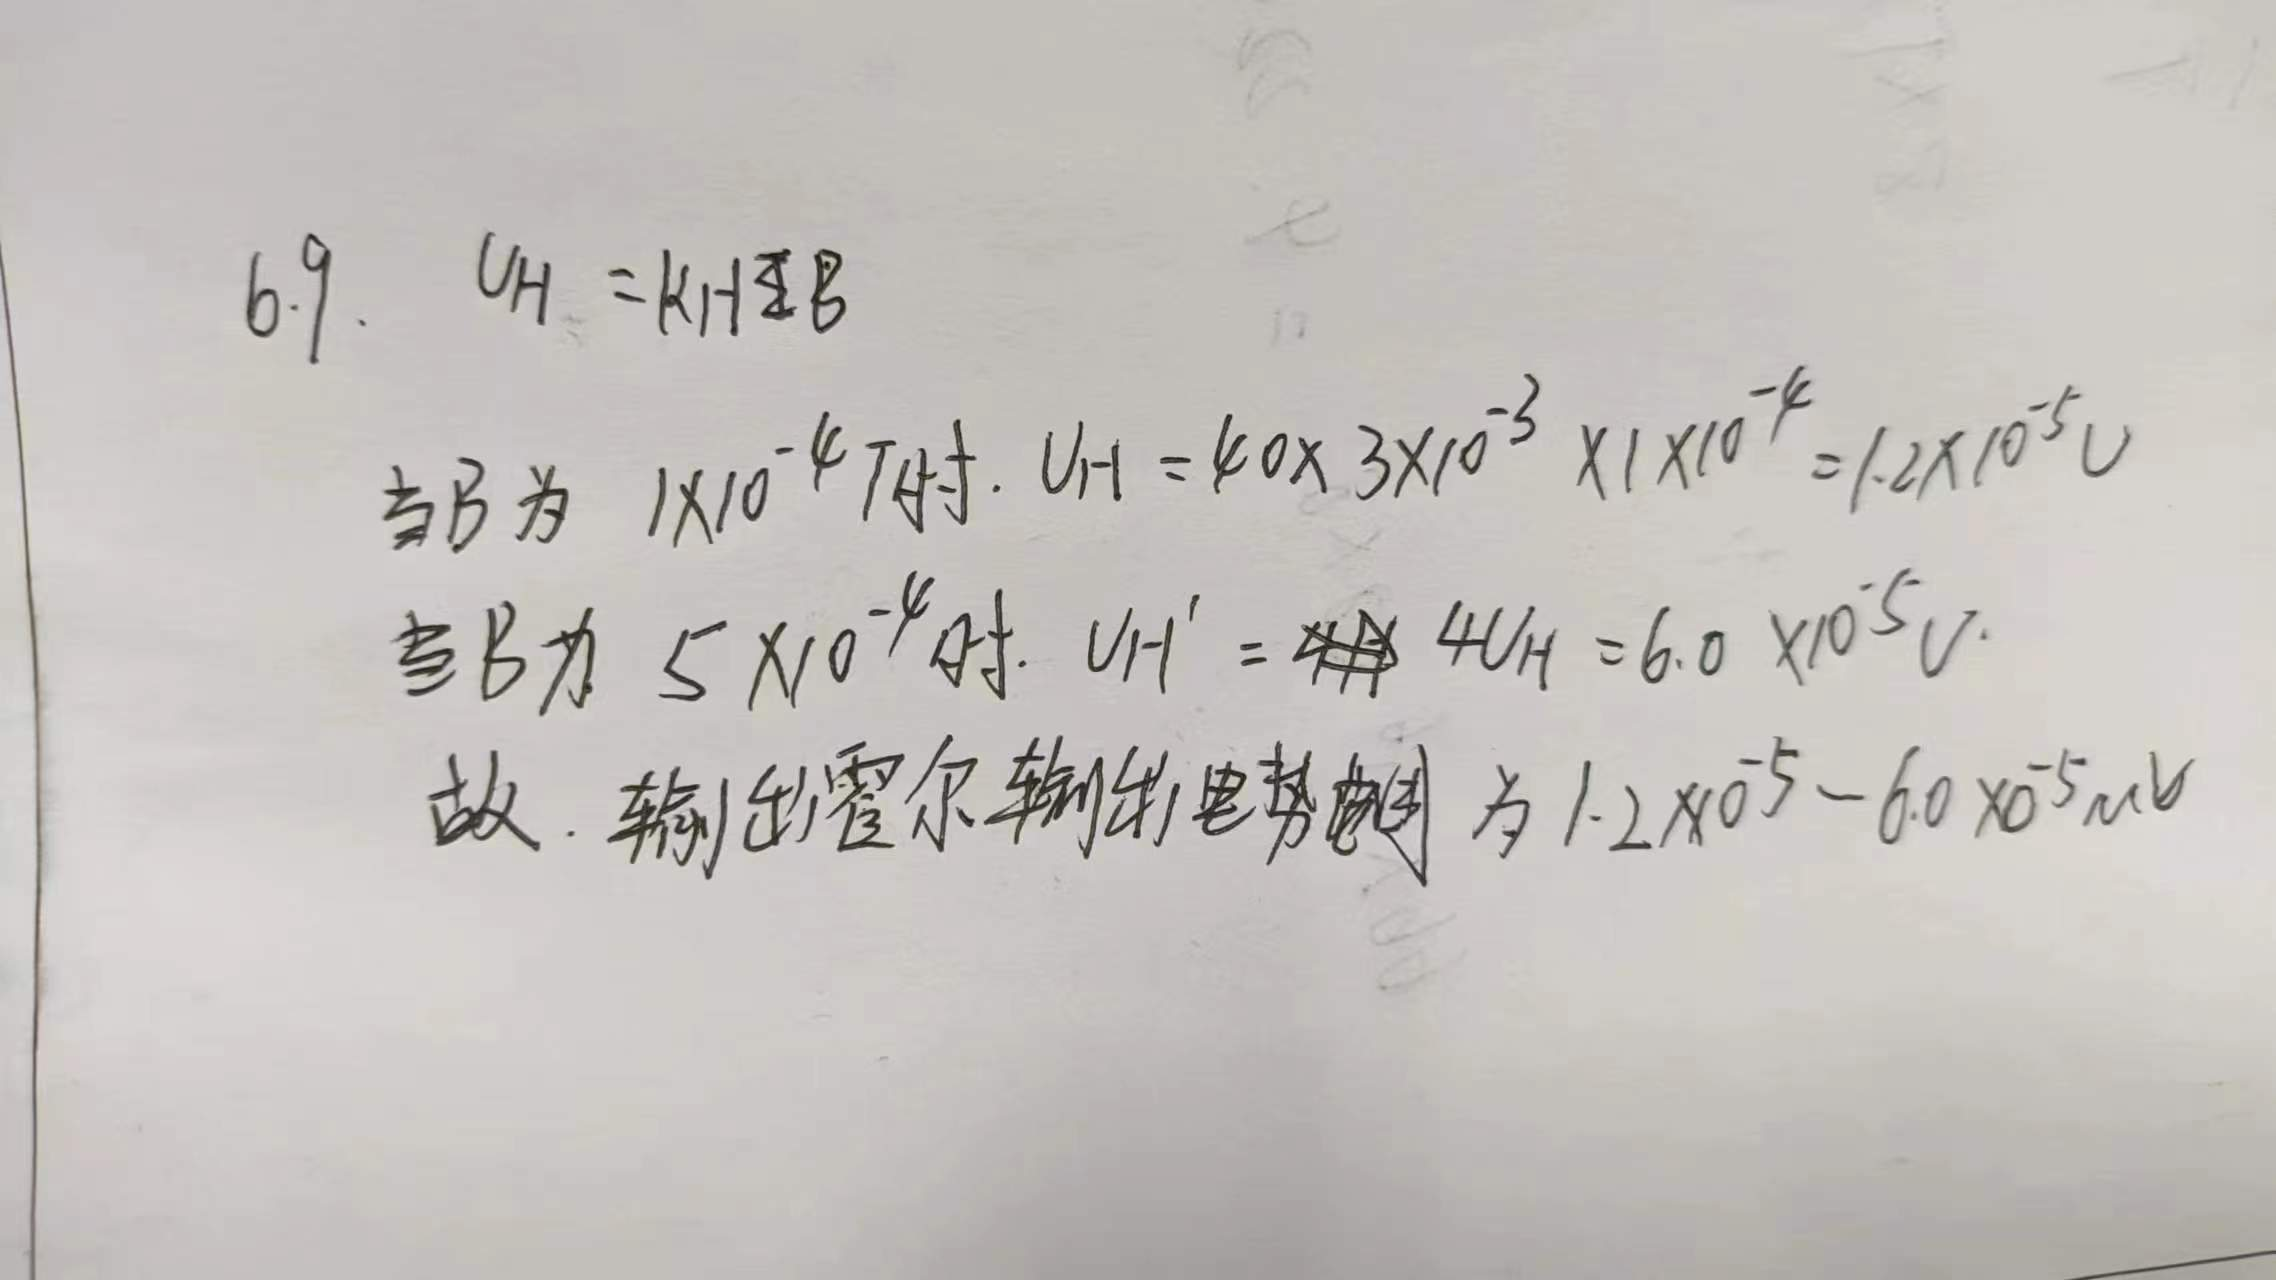 6.9. UH = KHIB
当B为 1×10⁻⁴T时. UH = 40×3×10⁻³×1×10⁻⁴=1.2×10⁻⁵V
当B为 5×10⁻⁴时. UH' = 4UH = 6.0×10⁻⁵V.
故. 输出霍尔输出电势 为 1.2×10⁻⁵~6.0×10⁻⁵mV